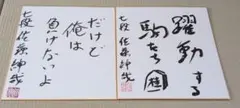 躍動する
駒たち
七段 佐藤紳哉
だけど
俺は
負けないよ
七段 佐藤紳哉